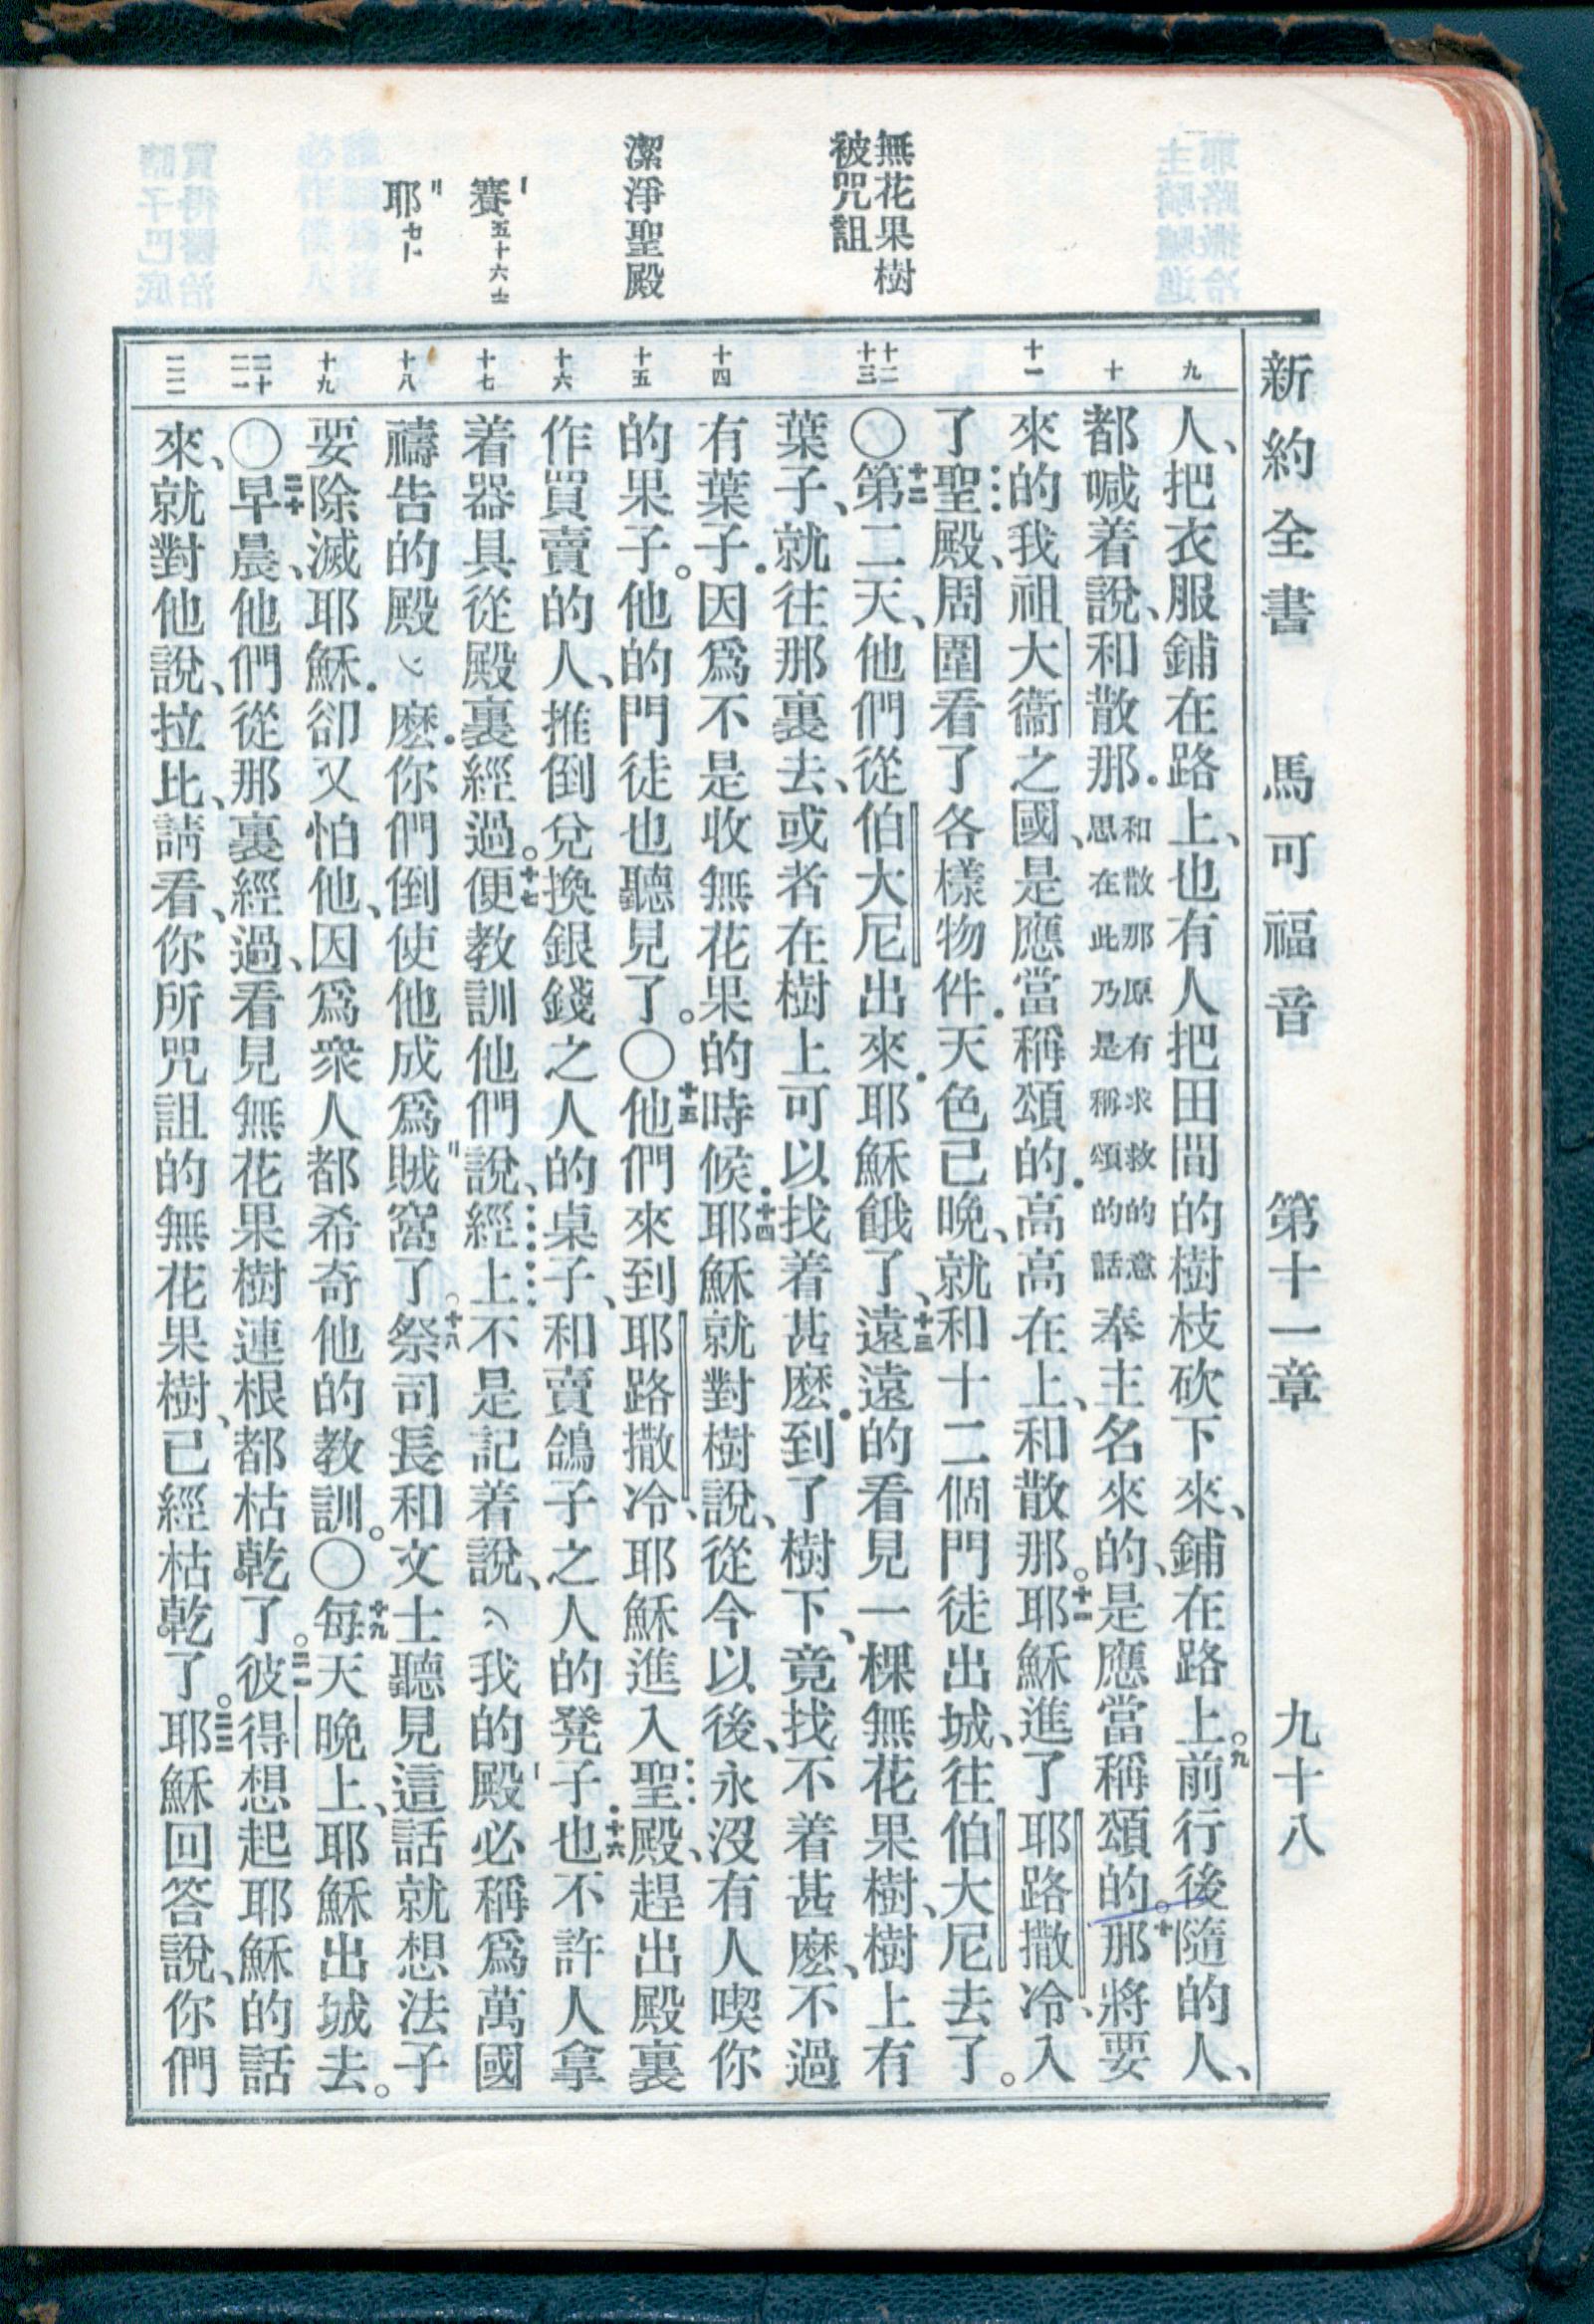 新約全書 馬可福音 第十一章 九十八
無花果樹
被咒詛
潔淨聖殿
賽五十六
耶七十一
九
十
十一
十二
十三
十四
十五
十六
十七
十八
十九
二十
二一
二二
人、把衣服鋪在路上、也有人把田間的樹枝砍下來、鋪在路上。九前行後隨的人、
都喊着說、和散那．和散那原有求救的意思在此乃是稱頌的話奉主名來的、是應當稱頌的。十那將要
來的我祖大衞之國、是應當稱頌的．高高在上、和散那。十一耶穌進了耶路撒冷、入
了聖殿、周圍看了各樣物件．天色已晚、就和十二個門徒出城、往伯大尼去了。
〇十二第二天、他們從伯大尼出來．耶穌餓了、十三遠遠的看見一棵無花果樹、樹上有
葉子、就往那裏去、或者在樹上可以找着甚麽．到了樹下、竟找不着甚麽、不過
有葉子．因爲不是收無花果的時候．十四耶穌就對樹說、從今以後、永沒有人喫你
的果子。他的門徒也聽見了。〇十五他們來到耶路撒冷、耶穌進入聖殿、趕出殿裏
作買賣的人、推倒兌換銀錢之人的桌子、和賣鴿子之人的凳子．十六也不許人拿
着器具從殿裏經過。十七便教訓他們說、經上不是記着說、我的殿必稱爲萬國
禱告的殿麽．你們倒使他成爲賊窩了。十八祭司長和文士聽見這話、就想法子
要除滅耶穌．卻又怕他、因爲衆人都希奇他的教訓。〇十九每天晚上、耶穌出城去。
〇二十早晨、他們從那裏經過、看見無花果樹連根都枯乾了。二一彼得想起耶穌的話
來、就對他說、拉比、請看、你所咒詛的無花果樹、已經枯乾了。二二耶穌回答說、你們